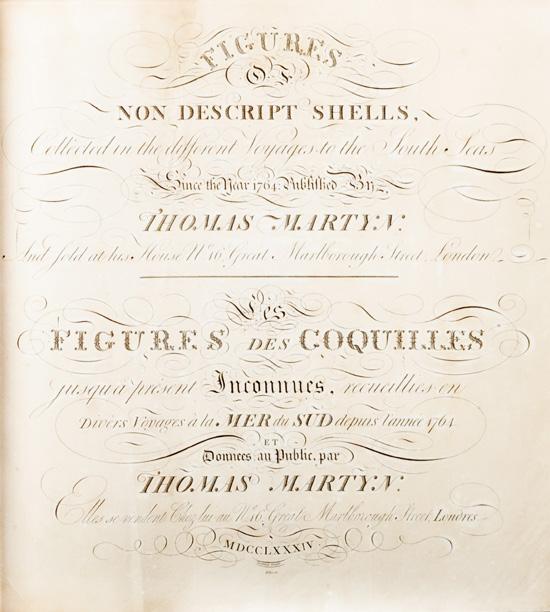 FIGURES
OF
NON DESCRIPT SHELLS,
Collected in the different Voyages to the South Seas
Since the Year 1764. Published By
THOMAS MARTYN.
And sold at his House No. 16, Great Marlborough Street, London.
Les
FIGURES DES COQUILLES
jusqu'à présent Inconnues, recueillies en
Divers Voyages à la MER du SUD depuis l'année 1764
ET
Données au Public, par
THOMAS MARTYN.
Elles se vendent Chez lui au No. 16, Great Marlborough Street, Londres.
MDCCLXXXIV.